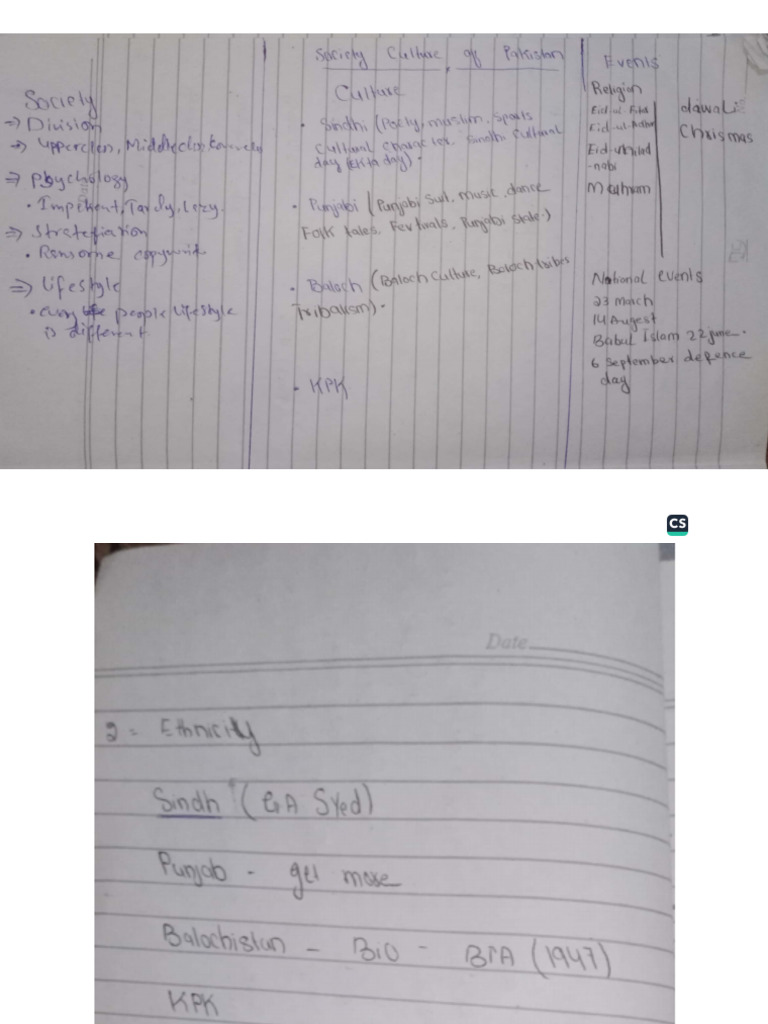 Society Culture of Pakistan
Society
⇒ Division
→ Upperclass, Middleclass
⇒ Psychology
• Tardy, Lazy.
⇒
•
⇒ Lifestyle
• people lifestyle
is different.
Culture
• Sindhi (Poety, muslim, Sports
Cultural character. Sindhi Cultural
day (Ekta day).
• Punjabi (Punjabi Suit, Music, dance
Folk tales, Festivals, Punjabi State.)
• Baloch (Baloch Culture, Baloch tribes
Tribalism).
• KPK
Events
Religion
Eid-ul-Fitd
Eid-ul-Adha
Eid-
-nabi
dawali
Chrismas
National events
23 march
14 Augest
Babul Islam 22 june.
6 September defence
day
CS
Date
2 = Ethnicity
Sindh (GA Syed)
Punjab - get more
Balochistan - (1947)
KPK